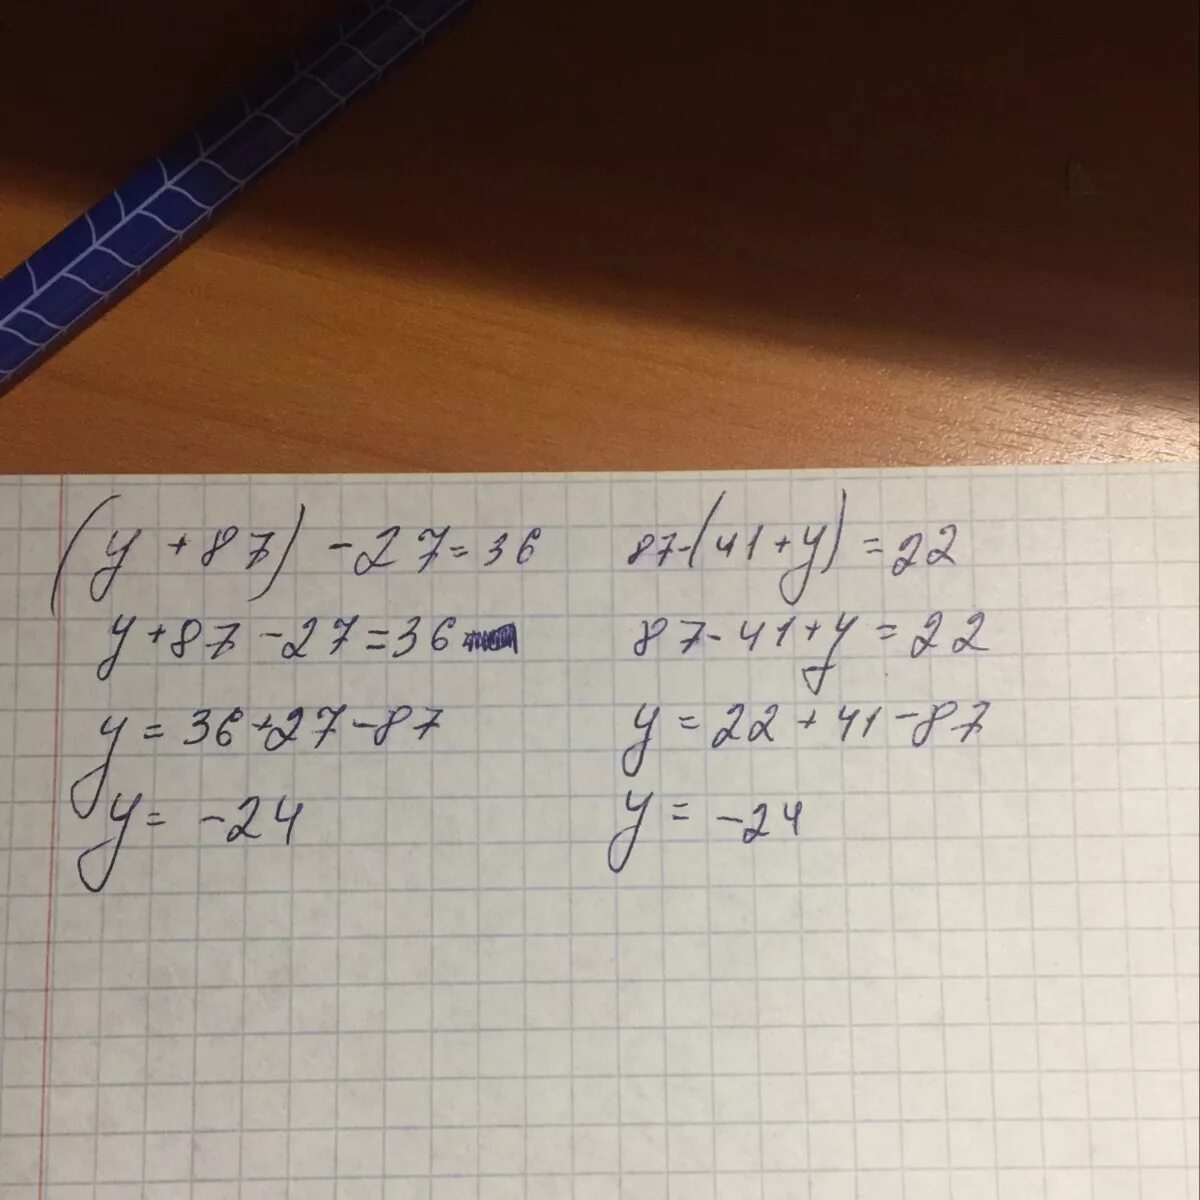 (y + 87) - 27 = 36
y + 87 - 27 = 36
y = 36 + 27 - 87
y = -24
87 - (41 + y) = 22
87 - 41 + y = 22
y = 22 + 41 - 87
y = -24